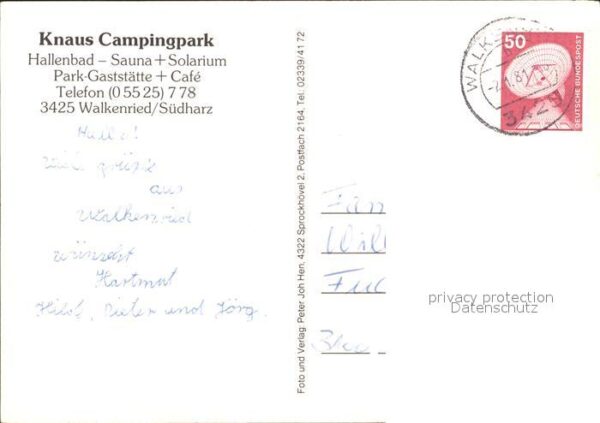 Knaus Campingpark
Hallenbad – Sauna + Solarium
Park-Gaststätte + Café
Telefon (0 55 25) 7 78
3425 Walkenried/Südharz
Hallo!
viele grüße
aus
Walkenried
wünscht
Hartmut
Hilde, Dieter und Jörg.
Foto und Verlag: Peter Joh Hen, 4322 Sprockhövel 2, Postfach 2164, Tel. 02339/41 72
50
DEUTSCHE BUNDESPOST
WALK
3425
Fam
Wil
privacy protection
Datenschutz